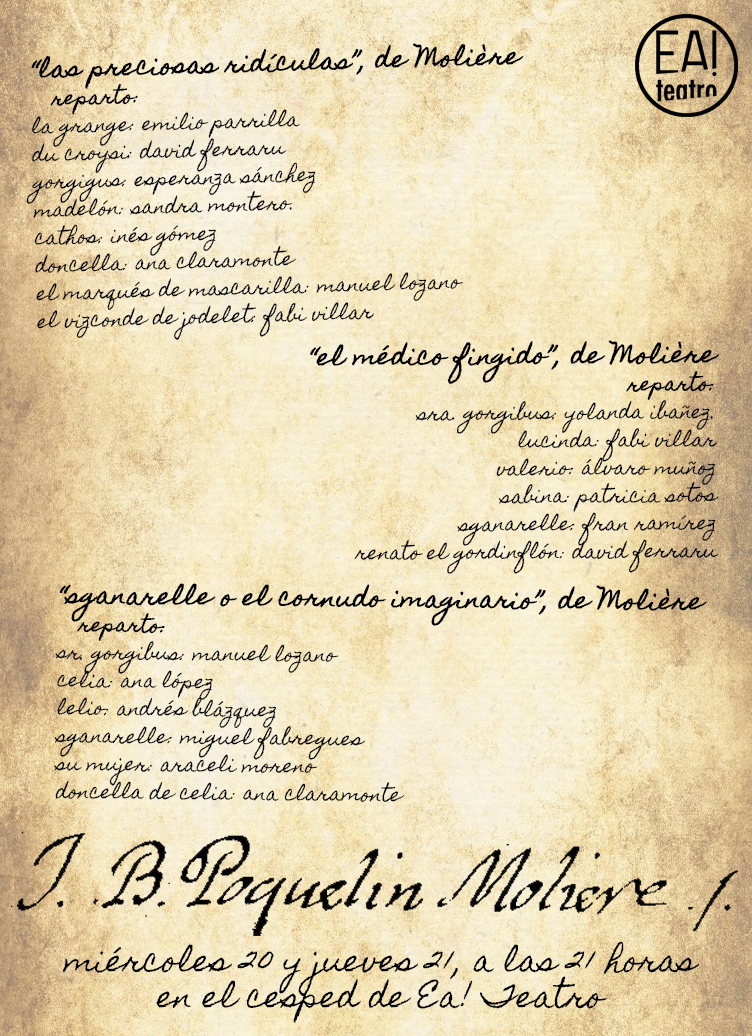 EA!
teatro
"las preciosas ridículas", de Molière
reparto:
la grange: emilio parrilla
du croysi: david ferraru
gorgigus: esperanza sánchez
madelón: sandra montero.
cathos: inés gómez
doncella: ana claramonte
el marqués de mascarilla: manuel lozano
el vizconde de jodelet: fabi villar
"el médico fingido", de Molière
reparto:
sra. gorgibus: yolanda ibañez.
lucinda: fabi villar
valerio: álvaro muñoz
sabina: patricia sotos
sganarelle: fran ramírez
renato el gordinflón: david ferraru
"sganarelle o el cornudo imaginario", de Molière
reparto:
sr. gorgibus: manuel lozano
celia: ana lópez
lelio: andrés blázquez
sganarelle: miguel fabregues
su mujer: araceli moreno
doncella de celia: ana claramonte
J. B. Poquelin Moliere /.
miércoles 20 y jueves 21, a las 21 horas
en el cesped de Ea! Teatro